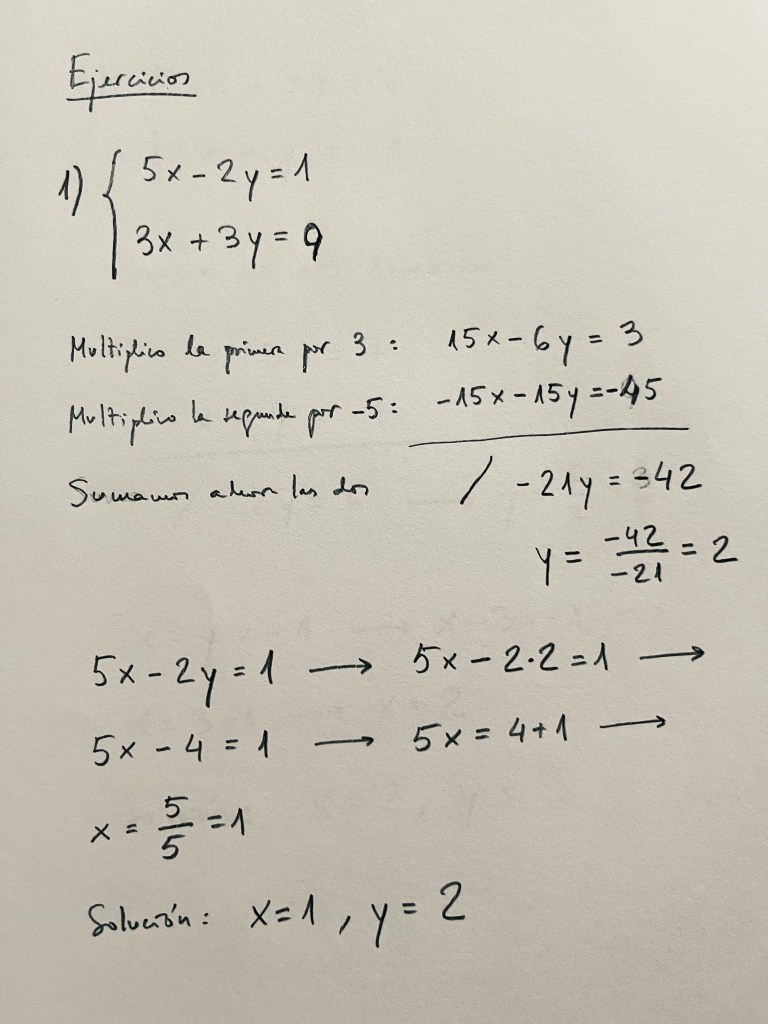 Ejercicios
1) { 5x - 2y = 1
3x + 3y = 9
Multiplico la primera por 3 : 15x - 6y = 3
Multiplico la segunda por -5 : -15x - 15y = -45
Sumamos ahora las dos / -21y = -42
y = -42/-21 = 2
5x - 2y = 1 → 5x - 2·2 = 1 →
5x - 4 = 1 → 5x = 4+1 →
x = 5/5 = 1
Solución: x=1, y = 2